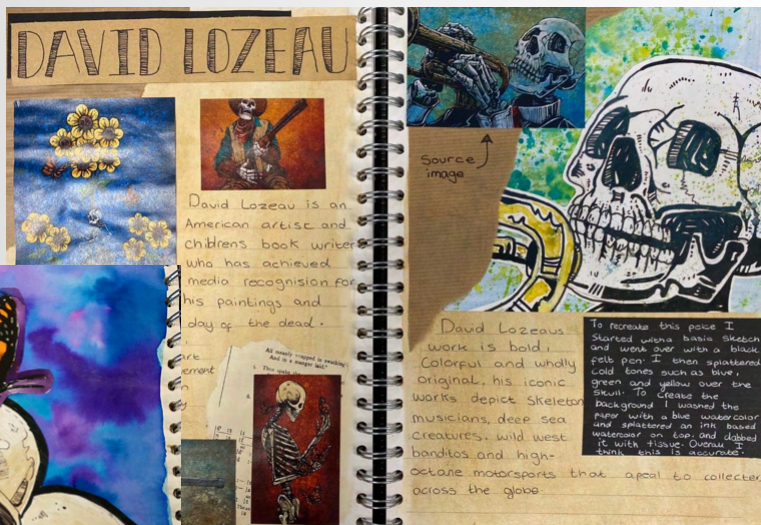 DAVID LOZEAU
David Lozeau is an
American artist and
childrens book writer
who has achieved
media recognision for
his paintings and
day of the dead.
art
ement
All meanly wrapped in swathing
And in a manger laid."
Source
image
David Lozeaus
work is bold,
Colorful and wholly
original, his iconic
works depict skeleton
musicians, deep sea
creatures, wild west
banditos and high-
octane motorsports that apeal to collecters
across the globe
To recreate this peice I
Started with a basic sketch
and went over with a black
felt pen. I then splattered
cold tones such as blue,
green and yellow over the
skull. To create the
background I washed the
paper with a blue watercolor
and splattered an ink based
watercolor on top. and dabbed
it with tissue. Overall I
think this is accurate.